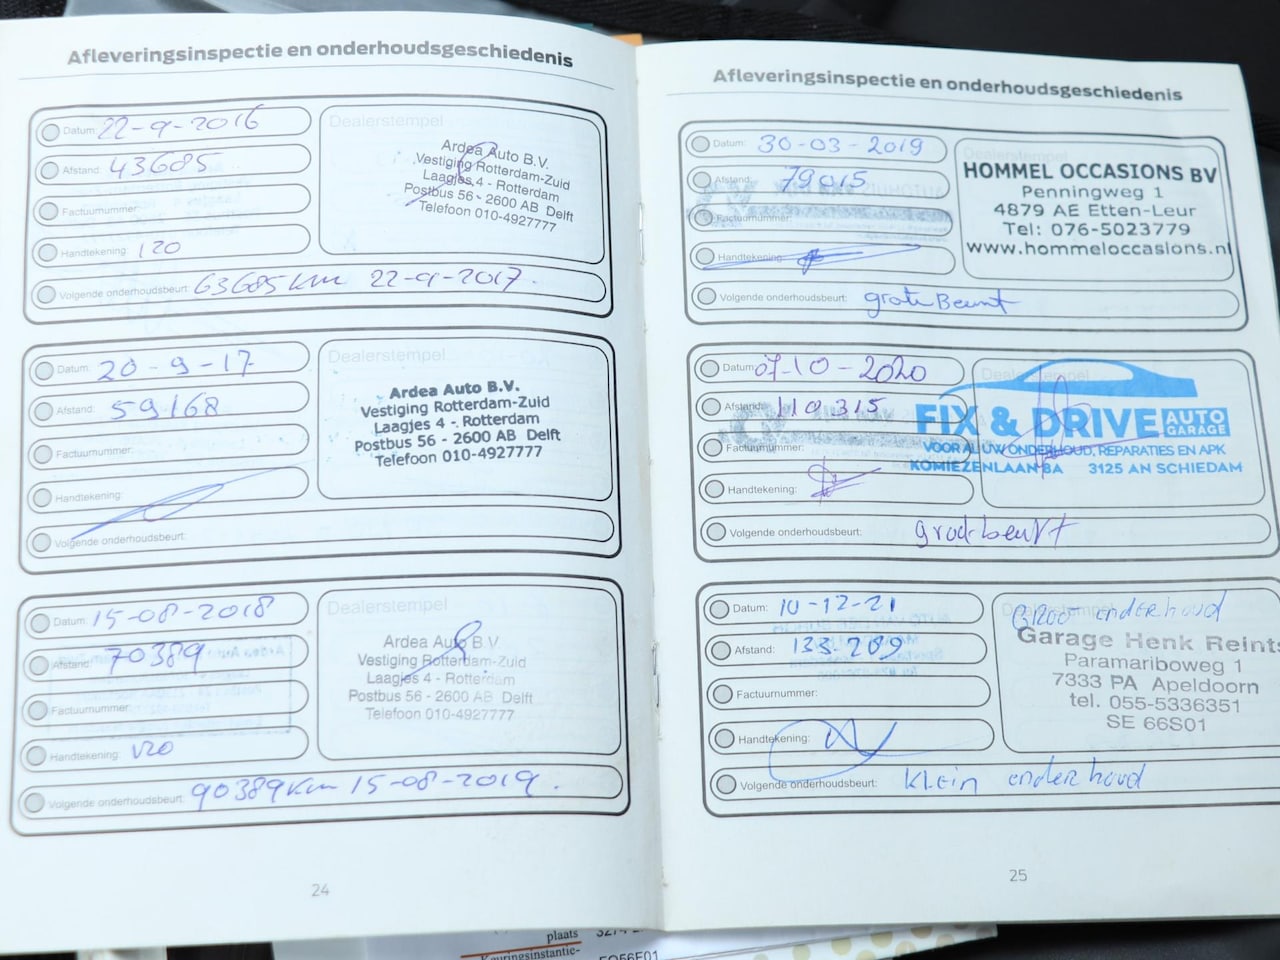 Afleveringsinspectie en onderhoudsgeschiedenis
Datum: 22-9-2016
Afstand: 43685
Factuurnummer:
Handtekening: 120
Volgende onderhoudsbeurt: 63685 km 22-9-2017.
Dealerstempel
Ardea Auto B.V.
Vestiging Rotterdam-Zuid
Laagjes 4 - Rotterdam
Postbus 56 - 2600 AB Delft
Telefoon 010-4927777
Datum: 20-9-17
Afstand: 59168
Factuurnummer:
Handtekening:
Volgende onderhoudsbeurt:
Dealerstempel
Ardea Auto B.V.
Vestiging Rotterdam-Zuid
Laagjes 4 - Rotterdam
Postbus 56 - 2600 AB Delft
Telefoon 010-4927777
Datum: 15-08-2018
Afstand: 70389
Factuurnummer:
Handtekening:
Volgende onderhoudsbeurt: 90389 km 15-08-2019.
Dealerstempel
Ardea Auto B.V.
Vestiging Rotterdam-Zuid
Laagjes 4 - Rotterdam
Postbus 56 - 2600 AB Delft
Telefoon 010-4927777
24
Afleveringsinspectie en onderhoudsgeschiedenis
Datum: 30-03-2019
Afstand: 79015
Factuurnummer:
Handtekening:
Volgende onderhoudsbeurt: grote Beurt
Dealerstempel
HOMMEL OCCASIONS BV
Penningweg 1
4879 AE Etten-Leur
Tel: 076-5023779
www.hommeloccasions.nl
Datum: 07-10-2020
Afstand: 110.315
Factuurnummer:
Handtekening:
Volgende onderhoudsbeurt: groot beurt
Dealerstempel
FIX & DRIVE AUTO GARAGE
VOOR AL UW ONDERHOUD, REPARATIES EN APK
KOMIEZENLAAN 8A 3125 AN SCHIEDAM
Datum: 10-12-21
Afstand: 133.289
Factuurnummer:
Handtekening:
Volgende onderhoudsbeurt: Klein onderhoud
Dealerstempel
Groot onderhoud
Garage Henk Reints
Paramariboweg 1
7333 PA Apeldoorn
tel. 055-5336351
SE 66S01
25
plaats
Keuringsinstantie-